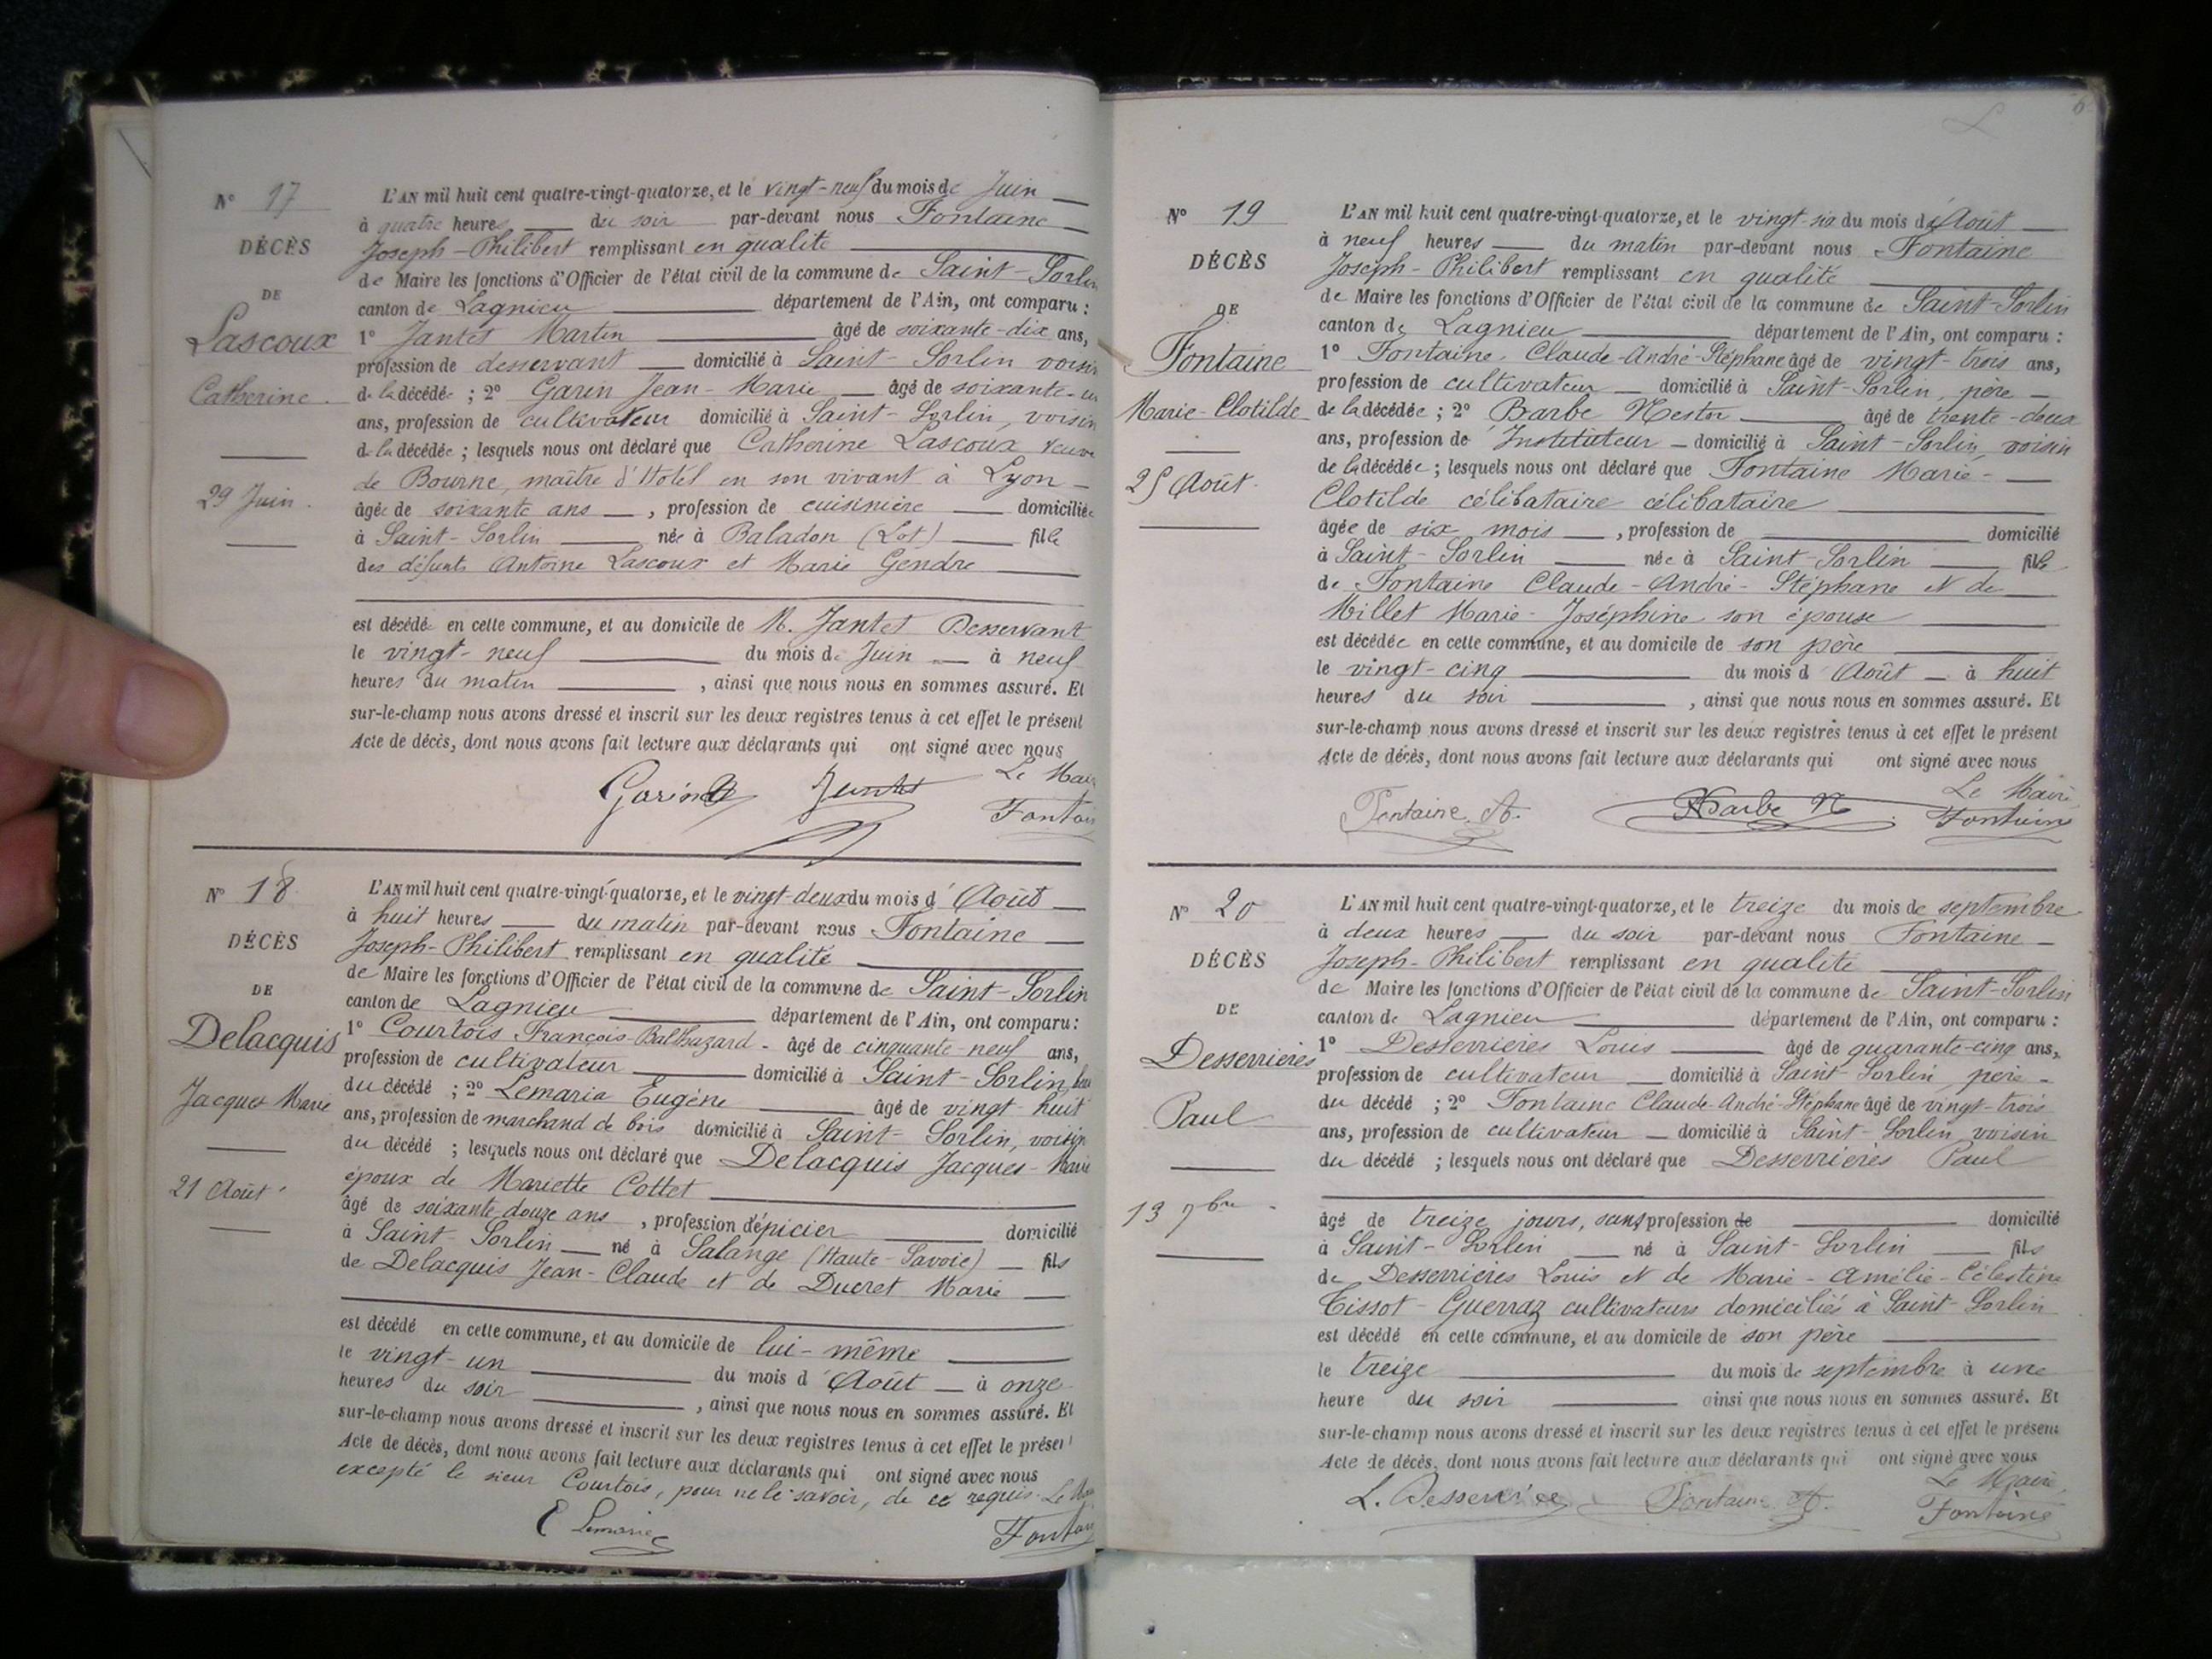 N° 17
DÉCÈS
DE
Lascoux
Catherine.
29 Juin.
L'AN mil huit cent quatre-vingt-quatorze, et le vingt-neuf du mois de Juin
à quatre heures du soir par-devant nous Fontaine
Joseph-Philibert remplissant en qualité
de Maire les fonctions d'Officier de l'état civil de la commune de Saint-Sorlin
canton de Lagnieu département de l'Ain, ont comparu :
1° Jantet Martin âgé de soixante-dix ans,
profession de desservant domicilié à Saint-Sorlin voisin
de la décédée ; 2° Garin Jean-Marie âgé de soixante-un
ans, profession de cultivateur domicilié à Saint-Sorlin, voisin
de la décédée ; lesquels nous ont déclaré que Catherine Lascoux veuve
de Bourne, maître d'Hotel en son vivant à Lyon
âgée de soixante ans, profession de cuisinière domiciliée
à Saint-Sorlin née à Baladon (Lot) fille
des défunts Antoine Lascoux et Marie Gendre
est décédée en cette commune, et au domicile de M. Jantet Desservant
le vingt-neuf du mois de Juin à neuf
heures du matin, ainsi que nous nous en sommes assuré. Et
sur-le-champ nous avons dressé et inscrit sur les deux registres tenus à cet effet le présent
Acte de décès, dont nous avons fait lecture aux déclarants qui ont signé avec nous
Le Mair
Garin Jantet Fontain
N° 18
DÉCÈS
DE
Delacquis
Jacques Marie
21 Août
L'AN mil huit cent quatre-vingt-quatorze, et le vingt-deux du mois d'Août
à huit heures du matin par-devant nous Fontaine
Joseph-Philibert remplissant en qualité
de Maire les fonctions d'Officier de l'état civil de la commune de Saint-Sorlin
canton de Lagnieu département de l'Ain, ont comparu :
1° Courtois François-Balthazard - âgé de cinquante-neuf ans,
profession de cultivateur domicilié à Saint-Sorlin,
du décédé ; 2° Lemaria Eugène âgé de vingt-huit
ans, profession de marchand de bois domicilié à Saint-Sorlin, voisin
du décédé ; lesquels nous ont déclaré que Delacquis Jacques-Marie
époux de Mariette Cottet
âgé de soixante-douze ans, profession d'épicier domicilié
à Saint-Sorlin né à Salange (Haute-Savoie) fils
de Delacquis Jean-Claude et de Ducret Marie
est décédé en cette commune, et au domicile de lui-même
le vingt-un du mois d'Août à onze
heures du soir, ainsi que nous nous en sommes assuré. Et
sur-le-champ nous avons dressé et inscrit sur les deux registres tenus à cet effet le présen
Acte de décès, dont nous avons fait lecture aux déclarants qui ont signé avec nous
excepté le sieur Courtois, pour ne le savoir, de ce requis. Le
E Lemaria Fontain
N° 19
DÉCÈS
DE
Fontaine
Marie-Clotilde
25 Août.
L'AN mil huit cent quatre-vingt-quatorze, et le vingt-six du mois d'Août
à neuf heures du matin par-devant nous Fontaine
Joseph-Philibert remplissant en qualité
de Maire les fonctions d'Officier de l'état civil de la commune de Saint-Sorlin
canton de Lagnieu département de l'Ain, ont comparu :
1° Fontaine Claude-André-Stéphane âgé de vingt-trois ans,
profession de cultivateur domicilié à Saint-Sorlin, père
de la décédée ; 2° Barbe Nestor âgé de trente-deux
ans, profession de Instituteur domicilié à Saint-Sorlin, voisin
de la décédée ; lesquels nous ont déclaré que Fontaine Marie-
Clotilde célibataire célibataire
âgée de six mois, profession de domicilié
à Saint-Sorlin née à Saint-Sorlin fille
de Fontaine Claude-André-Stéphane et de
Millet Marie-Joséphine son épouse
est décédée en cette commune, et au domicile de son père
le vingt-cinq du mois d'Août à huit
heures du soir, ainsi que nous nous en sommes assuré. Et
sur-le-champ nous avons dressé et inscrit sur les deux registres tenus à cet effet le présent
Acte de décès, dont nous avons fait lecture aux déclarants qui ont signé avec nous
Le Maire
Fontaine A. Barbe N Fontaine
N° 20
DÉCÈS
DE
Desserrières
Paul
13 7bre
L'AN mil huit cent quatre-vingt-quatorze, et le treize du mois de septembre
à deux heures du soir par-devant nous Fontaine
Joseph-Philibert remplissant en qualité
de Maire les fonctions d'Officier de l'état civil de la commune de Saint-Sorlin
canton de Lagnieu département de l'Ain, ont comparu :
1° Desserrières Louis âgé de quarante-cinq ans,
profession de cultivateur domicilié à Saint-Sorlin père
du décédé ; 2° Fontaine Claude-André-Stéphane âgé de vingt-trois
ans, profession de cultivateur domicilié à Saint-Sorlin voisin
du décédé ; lesquels nous ont déclaré que Desserrières Paul
âgé de treize jours, sans profession de domicilié
à Saint-Sorlin né à Saint-Sorlin fils
de Desserrières Louis et de Marie-Amélie-Célestine
Tissot-Guerraz cultivateurs domiciliés à Saint-Sorlin
est décédé en cette commune, et au domicile de son père
le treize du mois de septembre à une
heure du soir ainsi que nous nous en sommes assuré. Et
sur-le-champ nous avons dressé et inscrit sur les deux registres tenus à cet effet le présent
Acte de décès, dont nous avons fait lecture aux déclarants qui ont signé avec nous
Le Maire
L. Desserrière Fontaine A. Fontaine